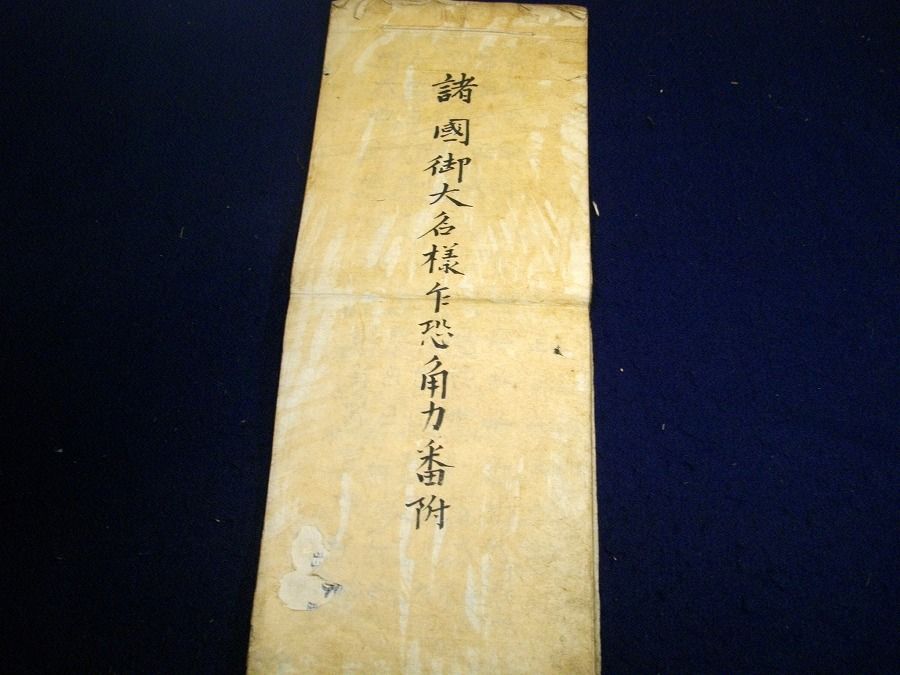 諸國御大名様乍恐角力番附